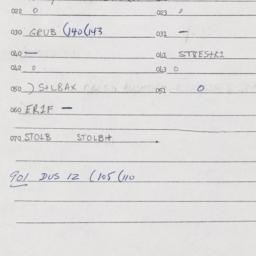 022 0 023 0
030 GRUB (140(143 031 —
040 — 041 STBEST21
042 0 043 0
050 ) S+LBAX 051 0
060 ER1F —
070 STOLB STOLB+
901 DUS 12 (105(110